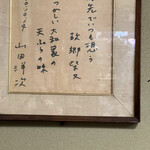 先でいつも思う
故郷柴又
つかしい大和家の
天ぷらの味
山田洋次